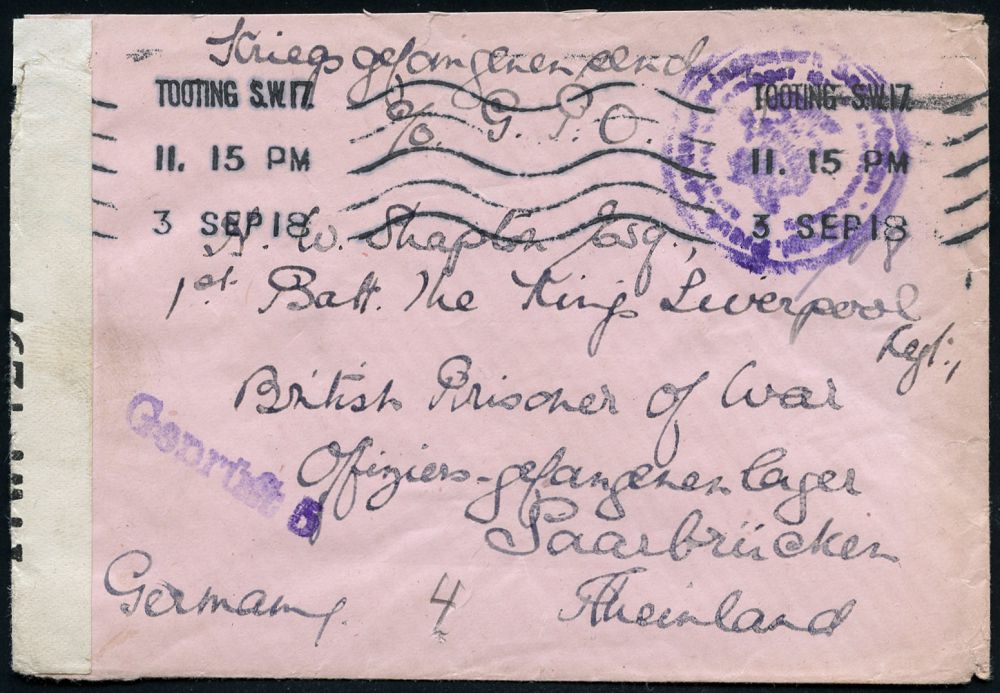 Kriegsgefangenen send
c/o. G. P. O.
TOOTING S.W.17.
11. 15 PM
3 SEP 18
TOOTING S.W.17
11. 15 PM
3 SEP 18
W. Shapton Esq.,
1st Batt. The King Liverpool
Regt.,
British Prisoner of War
Offiziers-gefangenenlager
Saarbrücken
Germany. 4 Rheinland
Geprüft 5